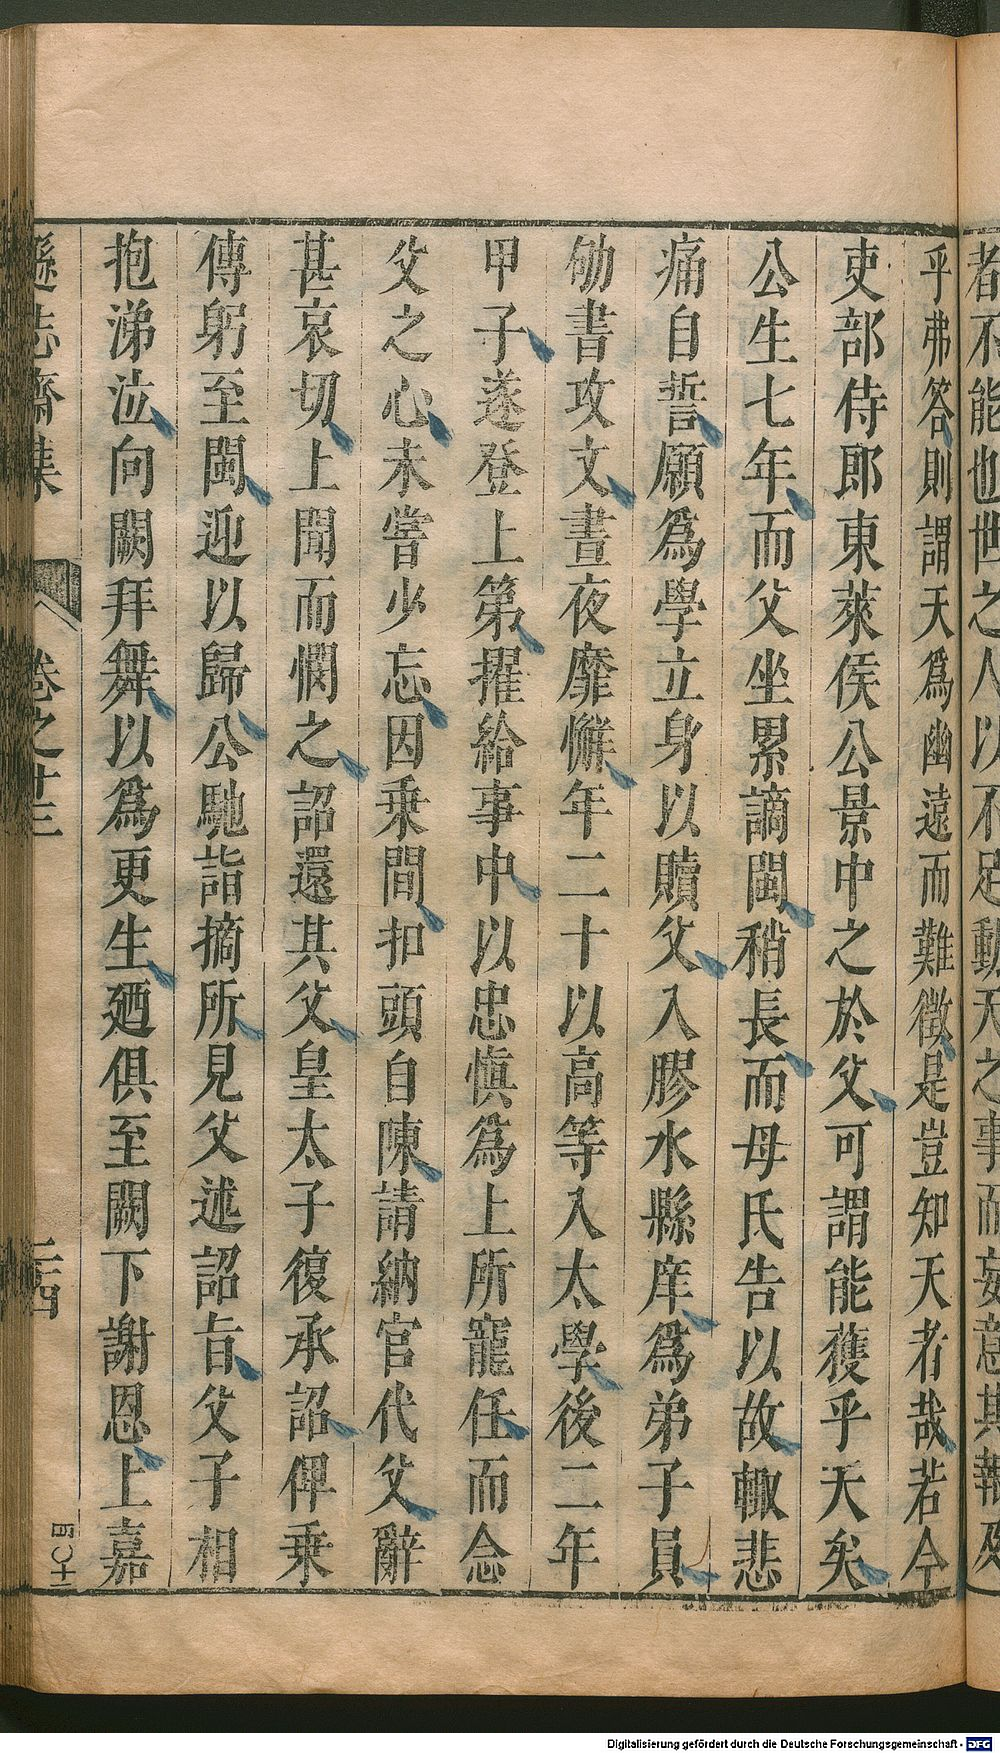 者不能也世之人以不足動天之事而妄意其報及
乎弗答則謂天爲幽遠而難徵是豈知天者哉若今
吏部侍郎東萊侯公景中之於父可謂能獲乎天矣
公生七年而父坐累謫閩稍長而母氏告以故輙悲
痛自誓願爲學立身以贖父入膠水縣庠爲弟子員
劬書攻文晝夜靡懈年二十以高等入太學後二年
甲子遂登上第擢給事中以忠愼爲上所寵任而念
父之心未嘗少忘因乗間扣頭自陳請納官代父辭
甚哀切上聞而憫之詔還其父皇太子復承詔俾乗
傳躬至閩迎以歸公馳詣摘所見父述詔旨父子相
抱涕泣向闕拜舞以爲更生廼俱至闕下謝恩上嘉
遜志齋集
卷之十三
二四
四〇十二
Digitalisierung gefördert durch die Deutsche Forschungsgemeinschaft - DFG